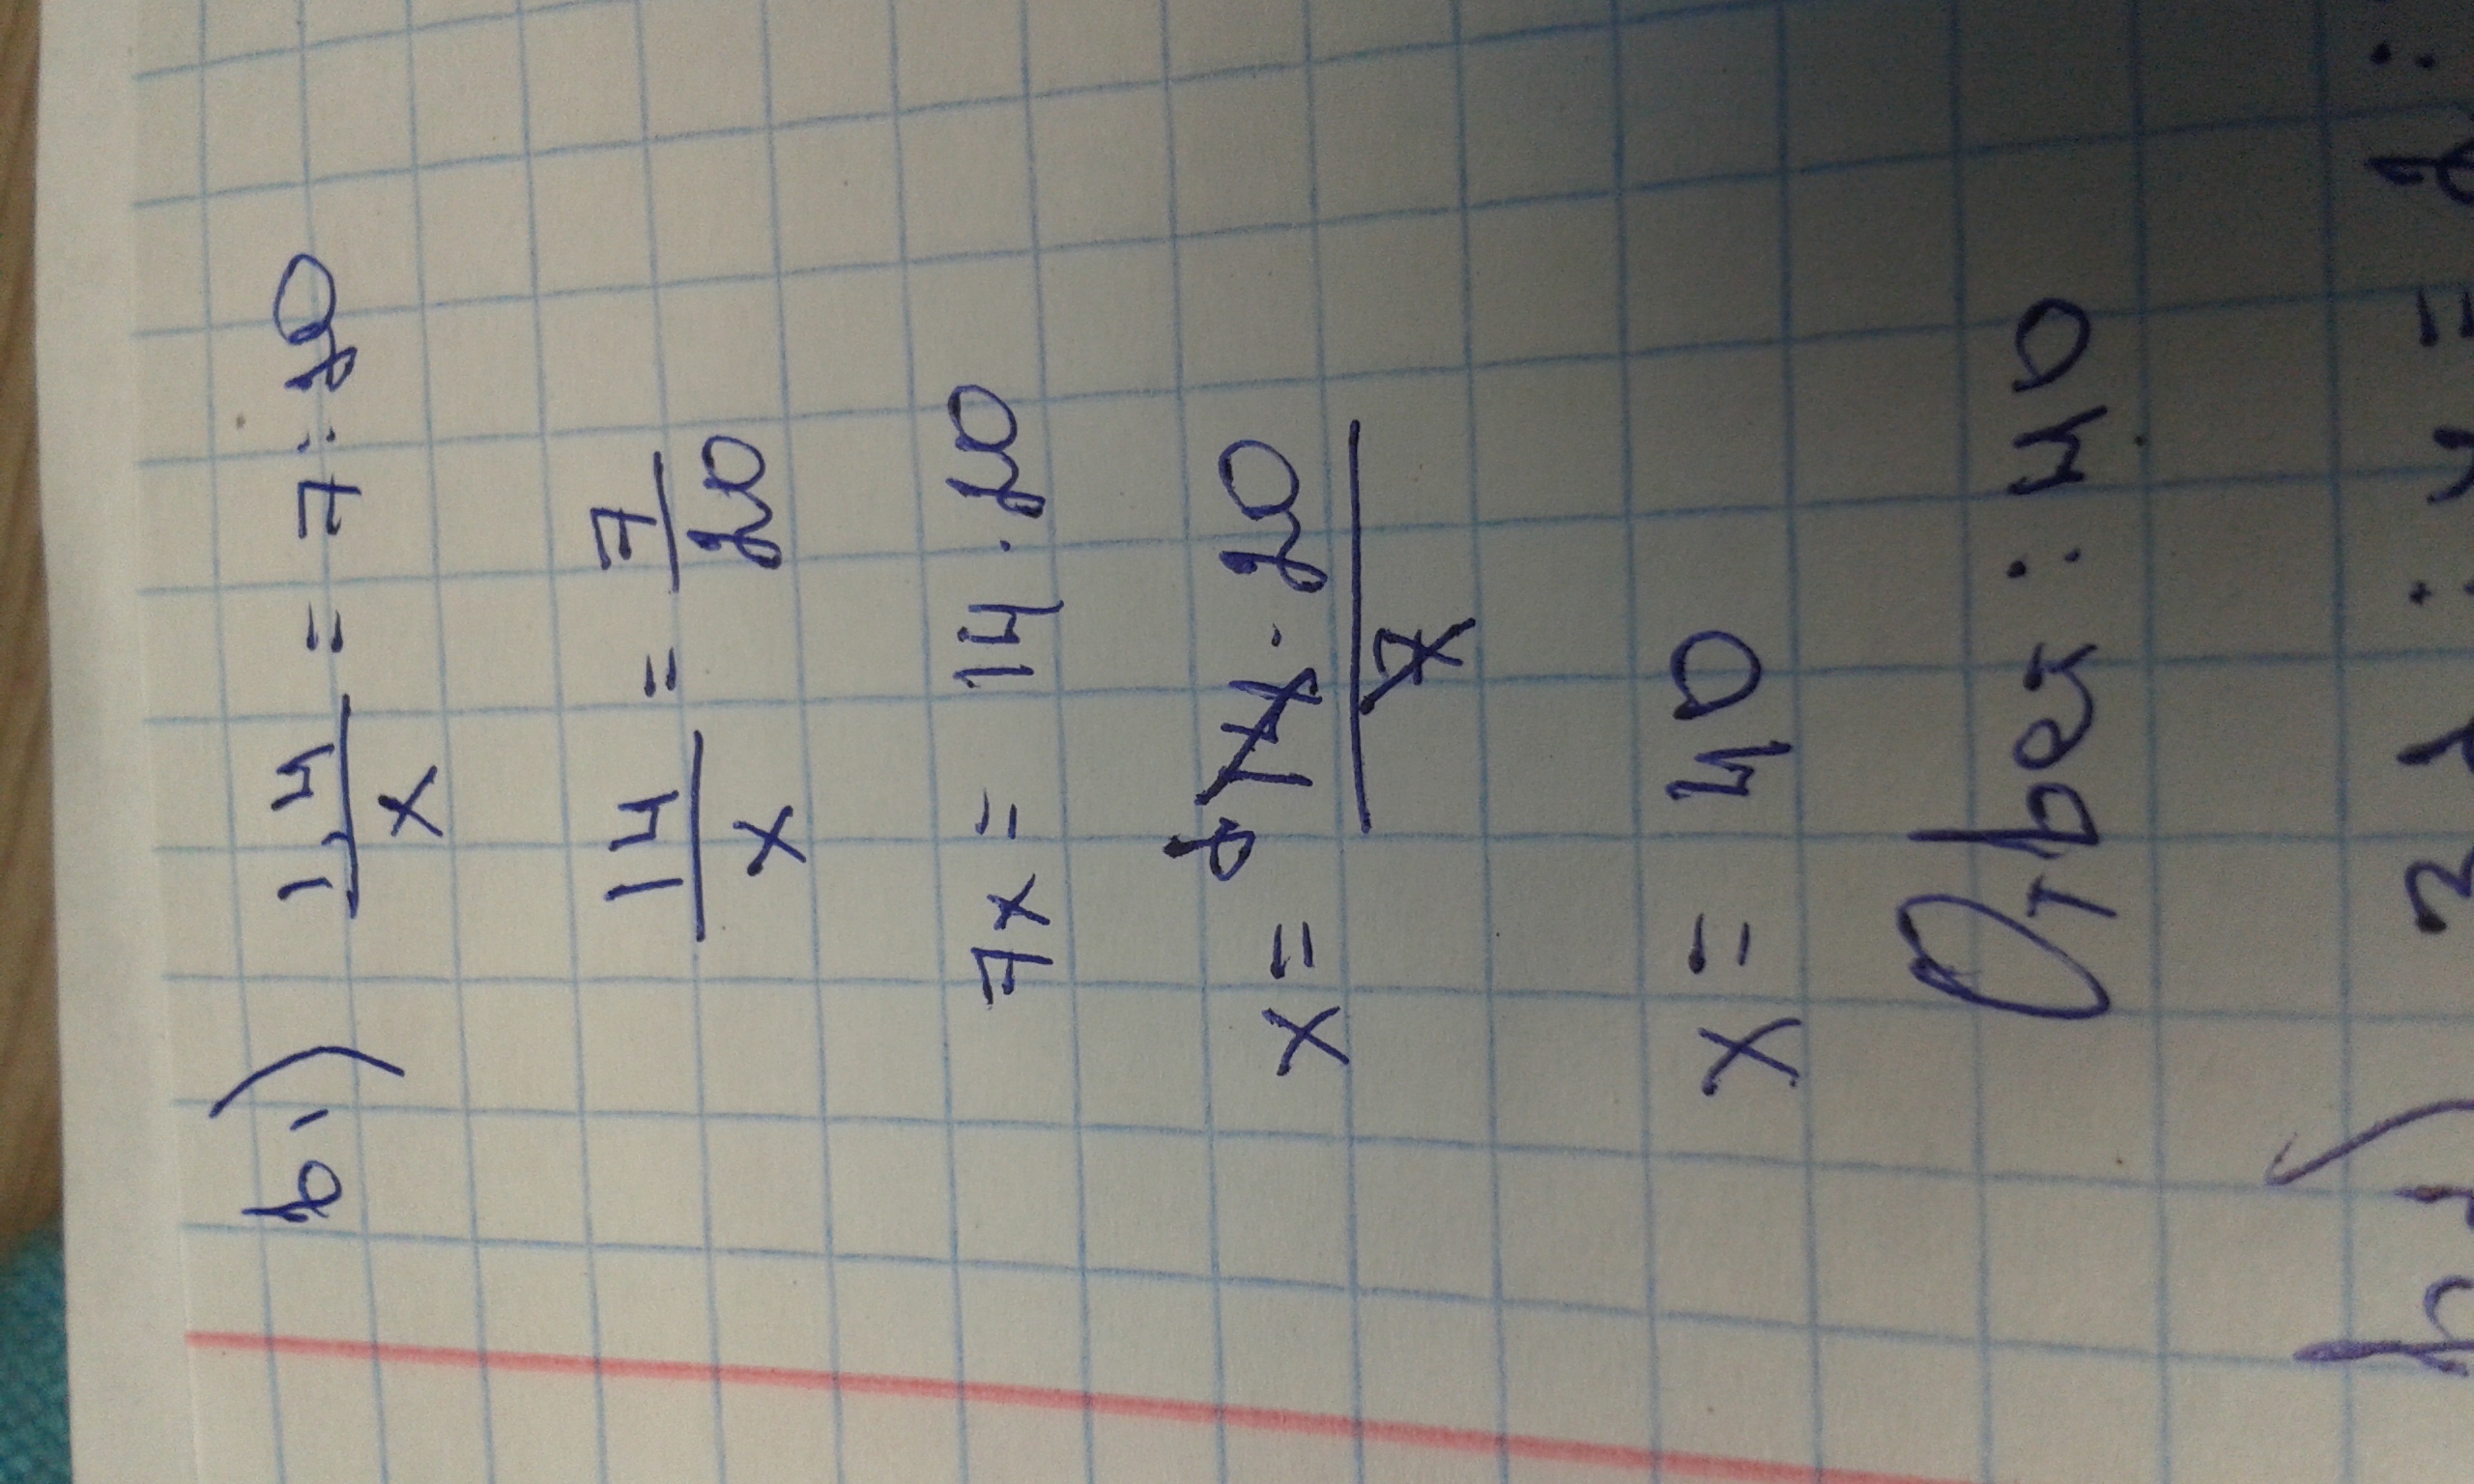 б1) 14/x = 7 : 20
14/x = 7/20
7x = 14 · 20
x = 2 14 · 20 / 7
x = 40
Ответ : 40